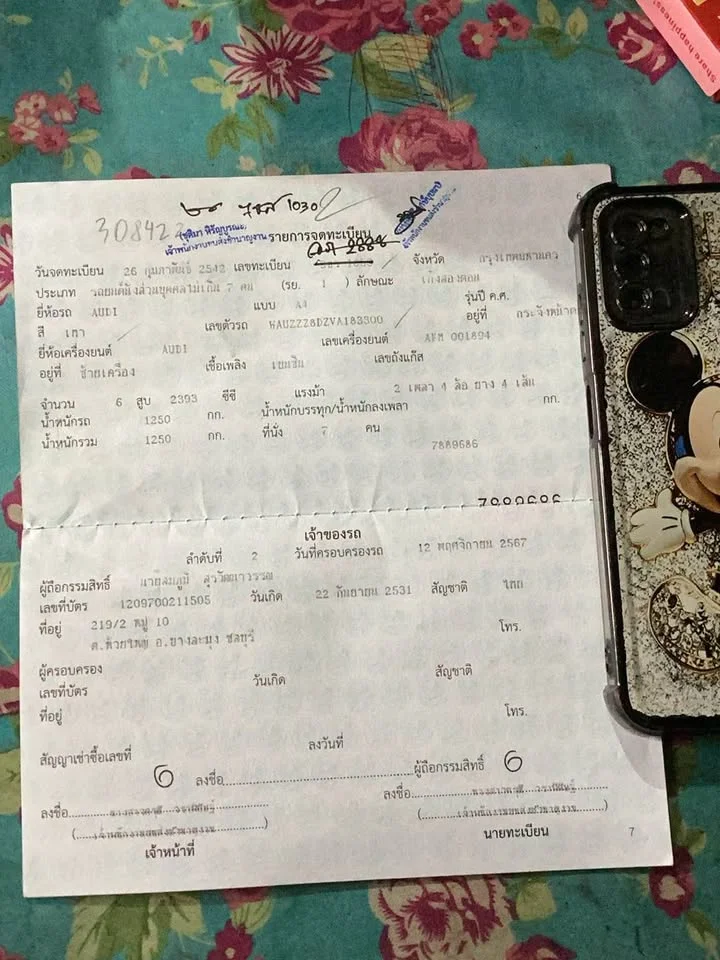 Share happiness!
308424
1030
(ชุติมา หิรัญบูรณะ)
เจ้าพนักงานขนส่งชำนาญงาน
รายการจดทะเบียน
วันจดทะเบียน 26 กุมภาพันธ์ 2542 เลขทะเบียน จังหวัด กรุงเทพมหานคร
ประเภท รถยนต์นั่งส่วนบุคคลไม่เกิน 7 คน (รย. 1 ) ลักษณะ เก๋งสองตอน
ยี่ห้อรถ AUDI แบบ A4 รุ่นปี ค.ศ.
สี เทา เลขตัวรถ WAUZZZ8DZVA183300 อยู่ที่ กระจังหน้า
ยี่ห้อเครื่องยนต์ AUDI เลขเครื่องยนต์ AFM 001894
อยู่ที่ ซ้ายเครื่อง เชื้อเพลิง เบนซิน เลขถังแก๊ส
จำนวน 6 สูบ 2393 ซีซี แรงม้า 2 เพลา 4 ล้อ ยาง 4 เส้น
น้ำหนักรถ 1250 กก. น้ำหนักบรรทุก/น้ำหนักลงเพลา กก.
น้ำหนักรวม 1250 กก. ที่นั่ง 7 คน
7889686
เจ้าของรถ
ลำดับที่ 2 วันที่ครอบครองรถ 12 พฤศจิกายน 2567
ผู้ถือกรรมสิทธิ์
เลขที่บัตร 1209700211505 วันเกิด 22 กันยายน 2531 สัญชาติ ไทย
ที่อยู่ 219/2 หมู่ 10 โทร.
ต.ห้วยใหญ่ อ.บางละมุง ชลบุรี
ผู้ครอบครอง
เลขที่บัตร วันเกิด สัญชาติ
ที่อยู่ โทร.
สัญญาเช่าซื้อเลขที่ ลงวันที่
ลงชื่อ ผู้ถือกรรมสิทธิ์
ลงชื่อ ลงชื่อ
เจ้าหน้าที่ นายทะเบียน
7